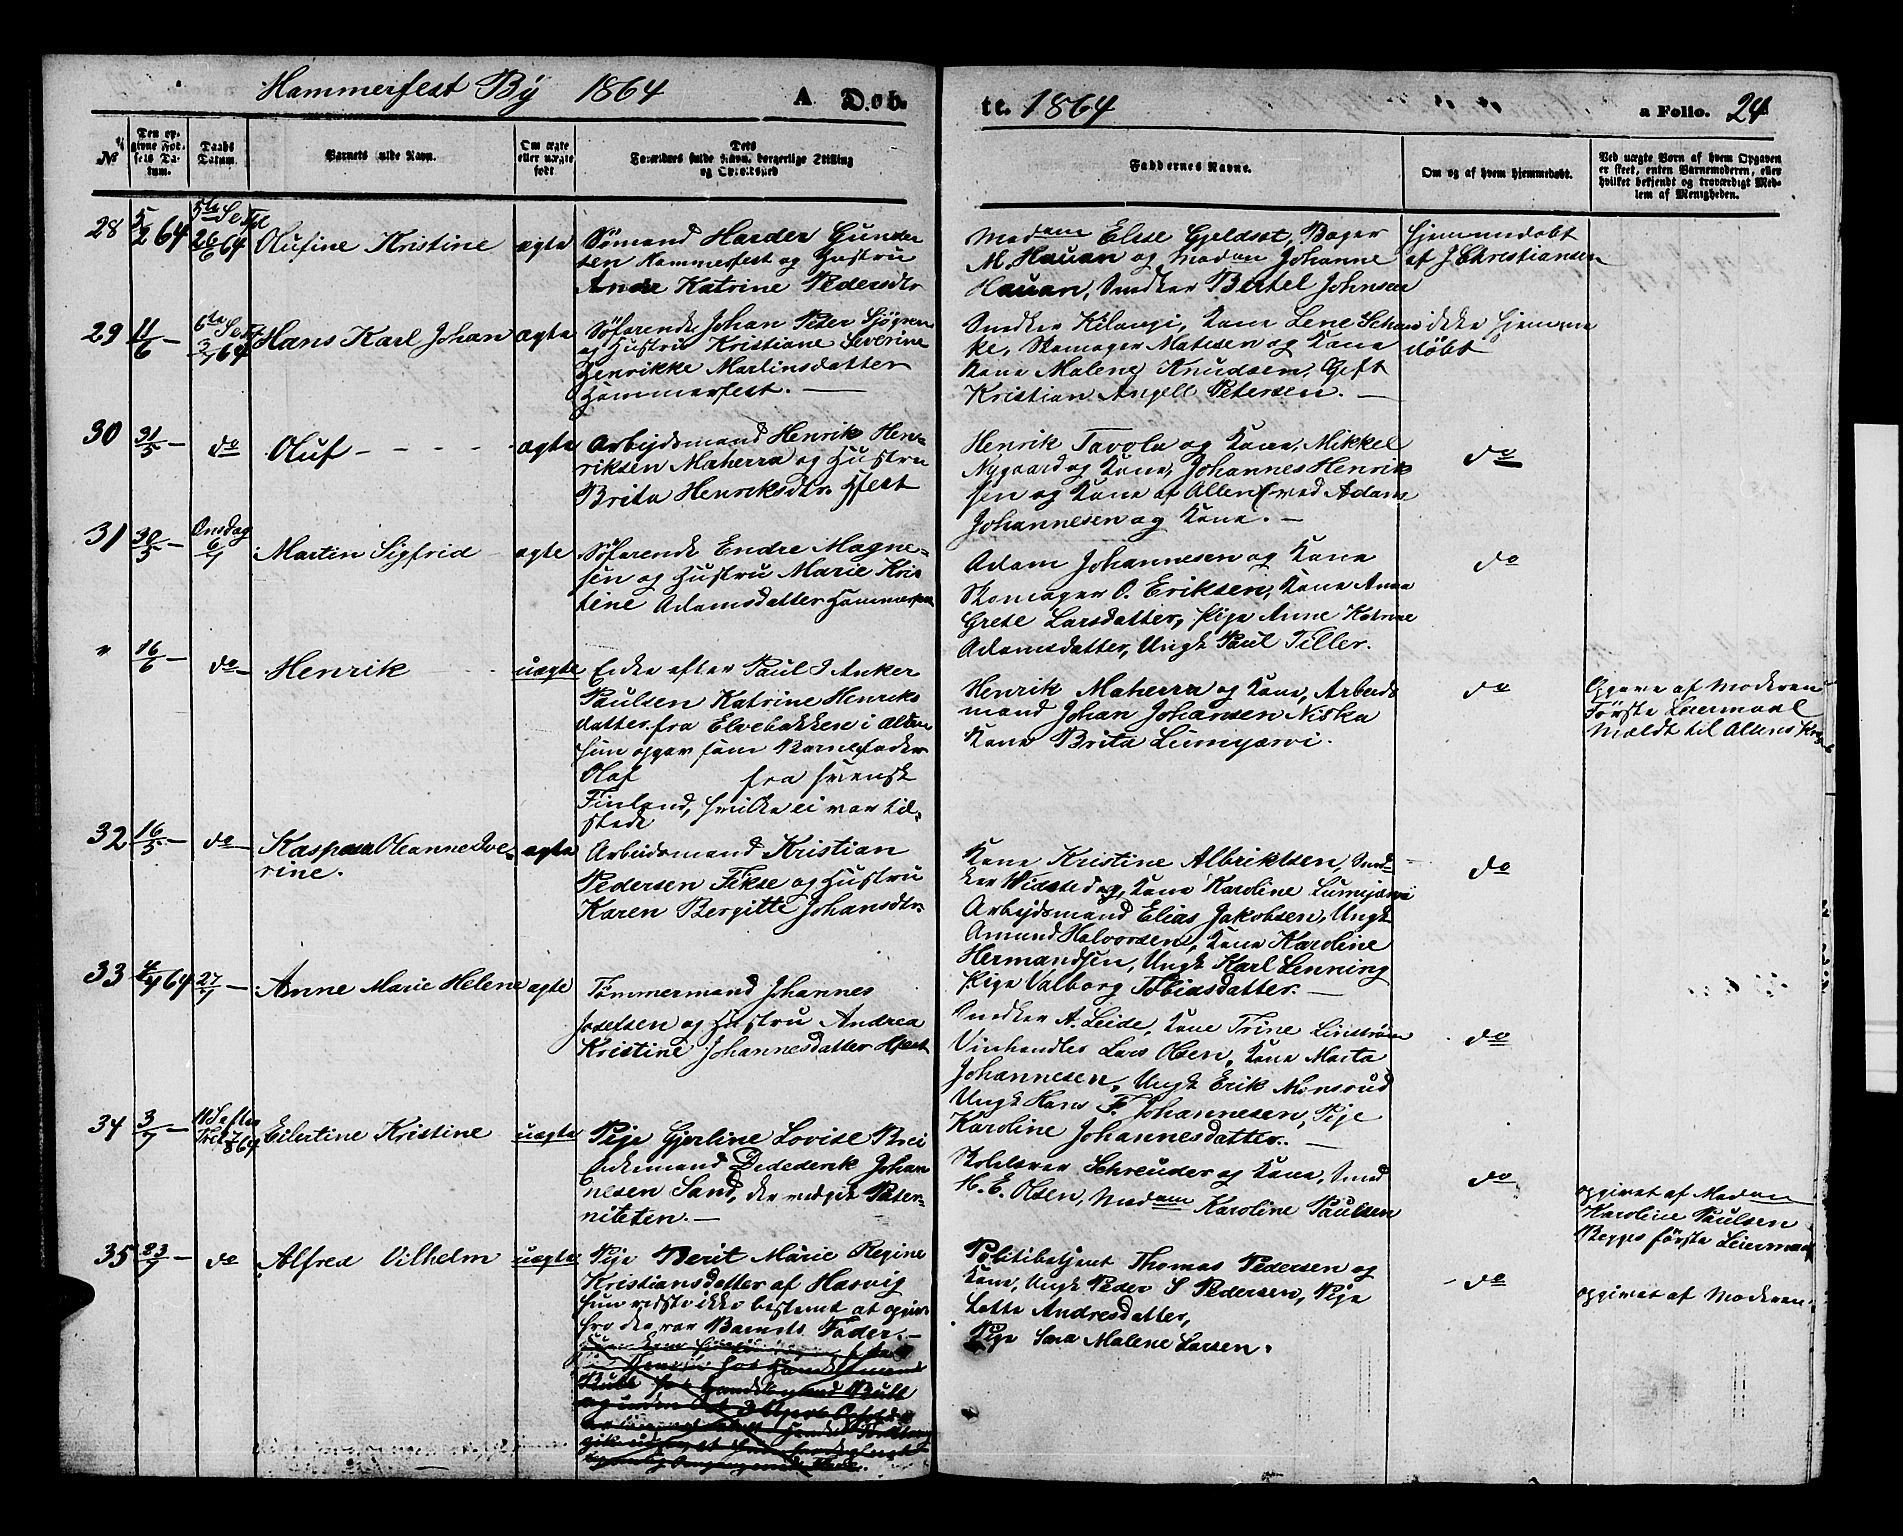 Hammerfest By 1864 A Døb-
te. 1864 a Folio. 24
№
Den op-
givne Fød-
sels Da-
tum.
Daabs
Datum.
Barnets fulde Navn.
Om ægte
eller uægte
født.
Dets
Forældres fulde Navn, borgerlige Stilling
og Opholdssted
Faddernes Navne.
Om og af hvem hjemmedøbt.
Ved uægte Børn af hvem Opgaven
er skeet, enten Barnemoderen, eller
hvilket bekjendt og troværdigt Med-
lem af Menigheden.
28 5/2 64 5te S. e. Tr. 26/6 64 Olufine Kristine ægte
Sømand Harder Gunder
sen Hammerfest og Hustru
Ane Katrine Pedersdtr
Madam Elise Gjeldset, Bager
M. Hauan og Madam Johanne
Hauan, Snedker Bertel Johnsen
Hjemmedøbt
af J. Christiansen
29 11/6 – 6te S. e. Tr. 3/7 64 Hans Karl Johan ægte
Søfarende Johan Peter Sjøgren
og Hustru Kristiane Severine
Henrikke Martinsdatter
Hammerfest. –
Snedker Kilangi, Kone Lene Schan
ke, Skomager Matesen og Kone
Kone Malene Knudsen, Gift
Kristian Angell Petersen. –
ikke hjemme
døbt
30 31/5 – do Oluf - - - - ægte
Arbejdsmand Henrik Hen-
riksen Maherra og Hustru
Brita Henriksdtr. Hfest
Henrik Tavola og Kone, Mikkel
Nygaard og Kone, Johannes Henrik
sen og Kone af Alten (ved Adam
Johannesen og Kone. –
do
31 30/5 – Onsdag 6/7 Martin Sigfrid ægte
Søfarende Endre Magne-
sen og Hustru Marie Kris
tine Adamsdatter Hammerfest
Adam Johannesen og Kone
Skomager O. Eriksen, Kone Anne
Grete Larsdatter, Pige Anne Katrine
Adamsdatter, Ungk Paul Tiller.
do
" 16/6 – do – Henrik uægte
Enke efter Paul J Anker
Paulsen Katrine Henriks
datter fra Elvebakken i Alten
hun opgav som Barnefader
Olaf fra svensk
Finland, hvilke ei var til-
stede
Henrik Maherra og Kone, Arbeids
mand Johan Johansen Niska
Kone Brita Lumijærvi.
do
Opgave af Moderen
Første Leiermaal
Mældt til Altens
32 16/5 – do – Kaspara Oleanne
rine. ægte
Arbeidsmand Kristian
Pedersen Fikse og Hustru
Karen Bergitte Johansdtr
Kone Kristine Albriktsen, Sned
ker Widsted og Kone Karoline Lumijærvi
Arbejdsmand Elias Jakobsen, Ungk
Amund Halvorsen, Kone Karoline
Hermandsen, Ungk Karl Lenning
Pige Valborg Tobiasdatter. –
do
33 4/7 64 27/7 – Anne Marie Helene ægte
Tømmermand Johannes
Josefsen og Hustru Andrea
Kristine Johannesdatter Hfest
Snedker A. Leide, Kone Trine Linstrøm
Vinhandler Lars Olsen, Kone Marta
Johannesen, Ungk Erik Monsrud
Ungk Hans F. Johannesen, Pige
Karoline Johannesdatter. –
do
34 3/7 – 11 S. efter Trit. 7/8 64 Eilertine Kristine uægte
Pige Gjerline Lovise Brei
Enkemand Dedederik Johan
nesen Sand, der vedgik Pater-
niteten. –
Skolelærer Schreuder og Kone, Smed
H. E. Olsen, Madam Karoline Paulsen
do
opgivet af Madam
Karoline Paulsen
Begges første Leiermaal
35 23/7 – do Alfred Vilhelm uægte
Pige Berit Marie Regine
Kristiansdatter af Hasvig
hun vidste ikke bestemt at opgive
hvo der var Barnets Fader. –
Politibetjent Thomas Pedersen og
Kone, Ungk Peder S Pedersen, Pige
Lotte Andresdatter,
Pige Sara Malene Larsen.
– do
opgivet af Moderen